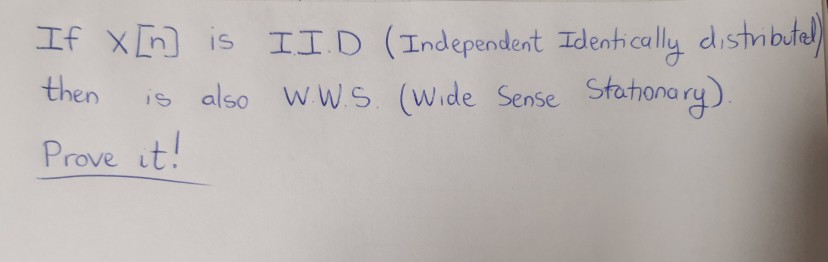 If X[n] is I.I.D (Independent Identically distributed)
then is also W.W.S. (Wide Sense Stationary).
Prove it!